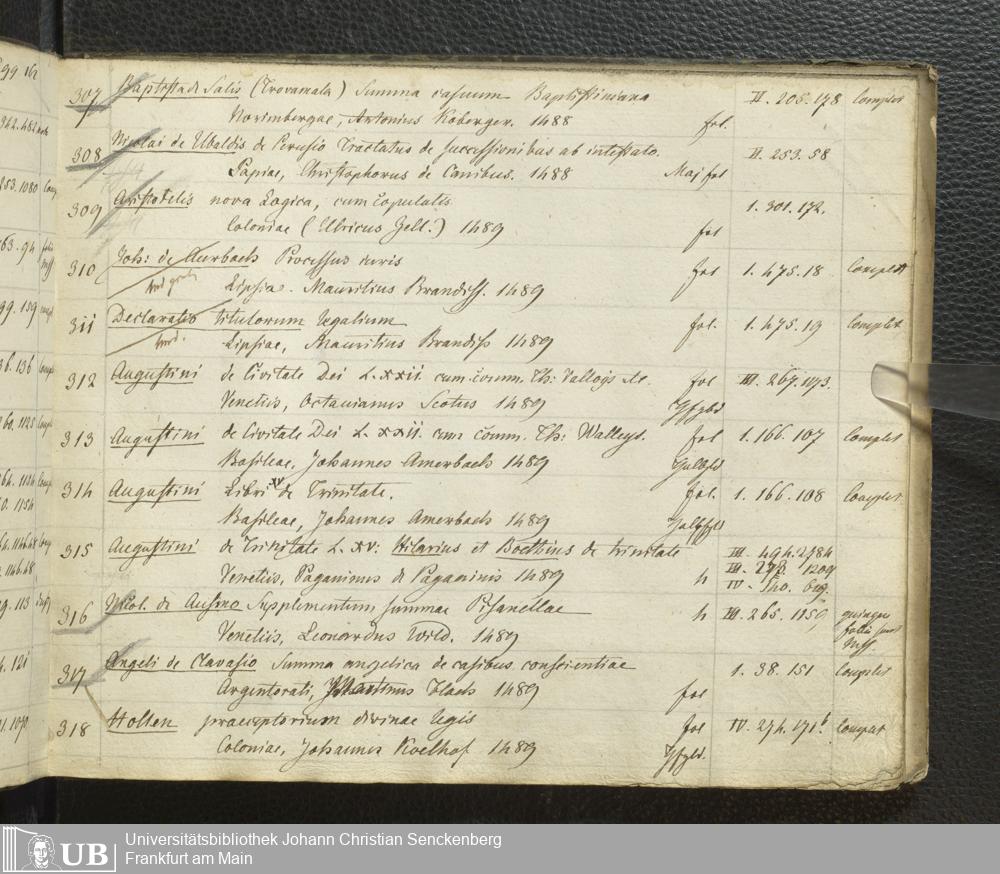 99 162
342.482
253.1080 Comp
63.94 folio Mss
99.159 compl
36.136 Compl
60.1125 Compl
64.1134 Comp
50.1154
64.1146.48 Comp
.1146.48
9.113
4.121
1.1070
307 Baptista de Salis (Trovamala) Summa casuum Baptistiniana II. 205.178 Complet
Norimbergae, Antonius Koberger. 1488 fol.
308 Nicolai de Ubaldis de Perusio Tractatus de successionibus ab intestato. II. 253.58
Papiae, Christophorus de Canibus. 1488 Maj fol
309 Aristotelis nova Logica, cum copulatis 1. 301.172.
Coloniae (Ulricus Zell.) 1489 fol
310 Joh: de Aurbach Processus iuris fol 1. 475.18 Complett
Lipsiae. Mauritius Brandiss. 1489
311 Declaratio titulorum legalium fol. 1. 475.19 Complet
Lipsiae, Mauritius Brandiss 1489
312 Augustini de Civitate Dei L. XXII. cum comm. Th: Valloys etc. fol III. 267.1073.
Venetiis, Octavianus Scotus 1489
313 Augustini de Civitate Dei L. XXII. cum comm. Th: Walleys. fol 1. 166.107 Complet
Basileae, Johannes Amerbach 1489
314 Augustini Libri XV de Trinitate. fol. 1. 166.108 Complet
Basileae, Johannes Amerbach 1489
315 Augustini de Trinitate L. XV: Hilarius et Boethius de trinitate III. 494.2784
III. 278 1209
Venetiis, Paganinus de Paganinis 1489 h IV. 140. 619.
316 Nicol. de Ausmo Supplementum summae Pisanellae h III. 265.1159 quinque folia sunt Mss.
Venetiis, Leonardus Wild. 1489
317 Angeli de Clavasio Summa angelica de casibus conscientiae 1. 38.151 Complet
Argentorati, Martinus Flach 1489 fol
318 Holten praeceptorium divinae legis fol IV. 274.171b Complet
Coloniae, Johannes Koelhof 1489
UB Universitätsbibliothek Johann Christian Senckenberg
Frankfurt am Main